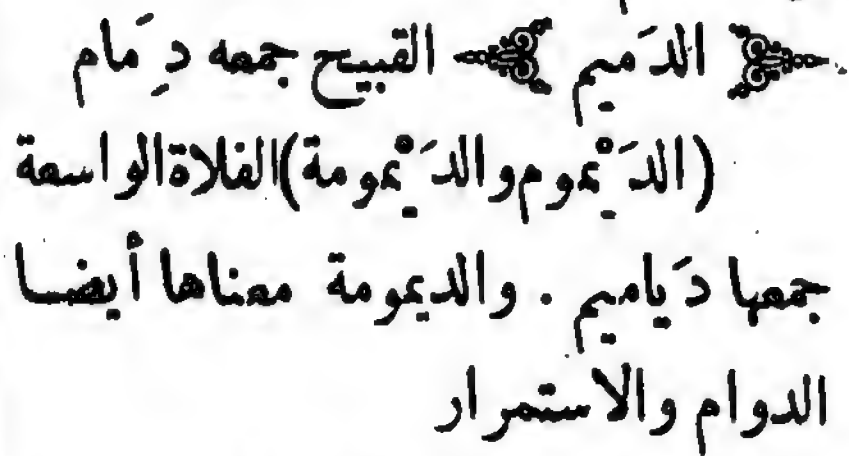 الدَميم القبيح جمعه دِمام
(الدَيْموم والدَيْمومة) الفلاة الواسعة
جمعها دَياميم . والديمومة معناها أيضا
الدوام والاستمرار